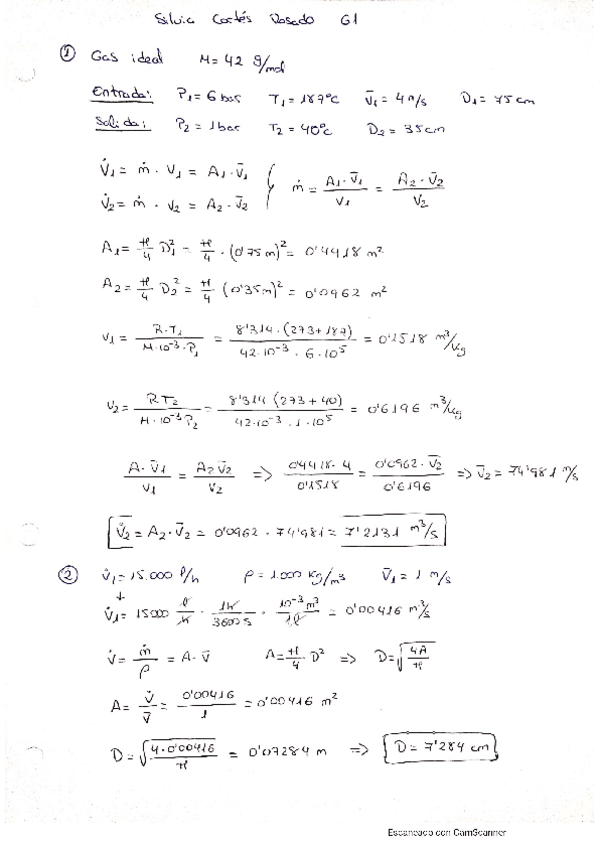 Silvia Cortés Rosado G1
① Gas ideal M = 42 g/mol
Entrada: P₁ = 6 bar T₁ = 187ºC v̄₁ = 4 m/s D₁ = 75 cm
Salida: P₂ = 1 bar T₂ = 40ºC D₂ = 35 cm
V̇₁ = ṁ · v₁ = A₁ · v̄₁
V̇₂ = ṁ · v₂ = A₂ · v̄₂
ṁ = A₁ · v̄₁ / v₁ = A₂ · v̄₂ / v₂
A₁ = π/4 D₁² = π/4 · (0'75 m)² = 0'4418 m²
A₂ = π/4 · D₂² = π/4 (0'35 m)² = 0'0962 m²
v₁ = R·T₁ / M·10⁻³·P₁ = 8'314 · (273+187) / 42·10⁻³ · 6·10⁵ = 0'1518 m³/kg
v₂ = RT₂ / M·10⁻³P₂ = 8'314 (273+40) / 42·10⁻³ · 1·10⁵ = 0'6196 m³/kg
A·v̄₁ / v₁ = A₂v̄₂ / v₂ => 0'4418·4 / 0'1518 = 0'0962·v̄₂ / 0'6196 => v̄₂ = 74'981 m/s
V̇₂ = A₂·v̄₂ = 0'0962 · 74'981 = 7'2131 m³/s
② V̇₁ = 15.000 l/h ρ = 1.000 kg/m³ v̄₁ = 1 m/s
↓
V̇₁ = 15000 l/h · 1h/3600 s · 10⁻³ m³/1l = 0'00416 m³/s
V̇ = ṁ/ρ = A · v̄ A = π/4 D² => D = √(4A/π)
A = V̇/v̄ = 0'00416/1 = 0'00416 m²
D = √(4·0'00416/π) = 0'07284 m => D = 7'284 cm
Escaneado con CamScanner